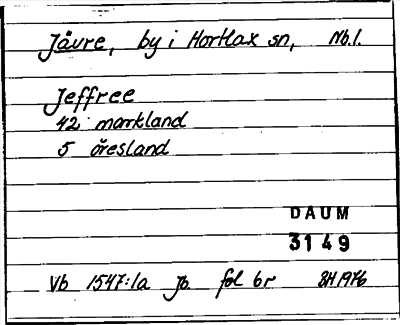 Jåvre, by i Hortlax sn, Nb.l.
Jeffree
42 markland
5 öresland
DAUM
3149
Vb 1547:1a Jb. fol 6r BH 1976